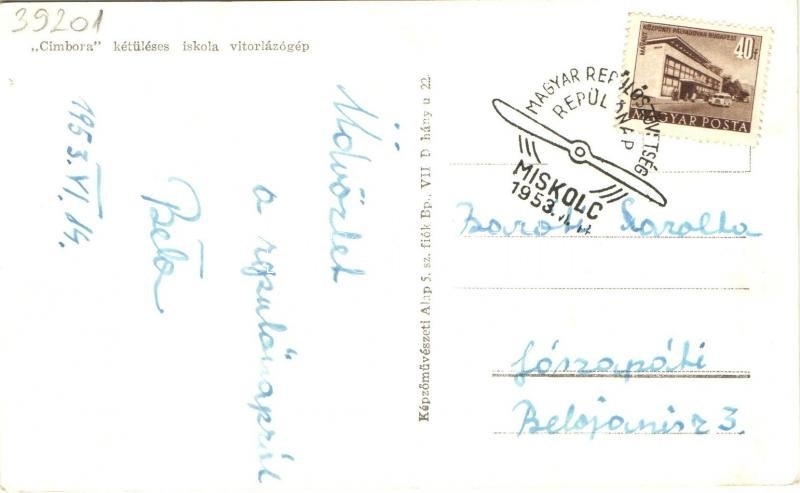 39201
„Cimbora” kétüléses iskola vitorlázógép
Üdvözlet
a repülőnapról
Béla
1953. VI. 14.
Képzőművészeti Alap 5. sz. fiók Bp., VII D hány u 22
MAGYAR REPÜLŐSZÖVETSÉG
REPÜLŐNAP
MISKOLC
1953. VI. 14
MÁVAUT KÖZPONTI PÁLYAUDVAR BUDAPEST
40f
MAGYAR POSTA
Baróti Sarolta
Jászapáti
Belojanisz 3.